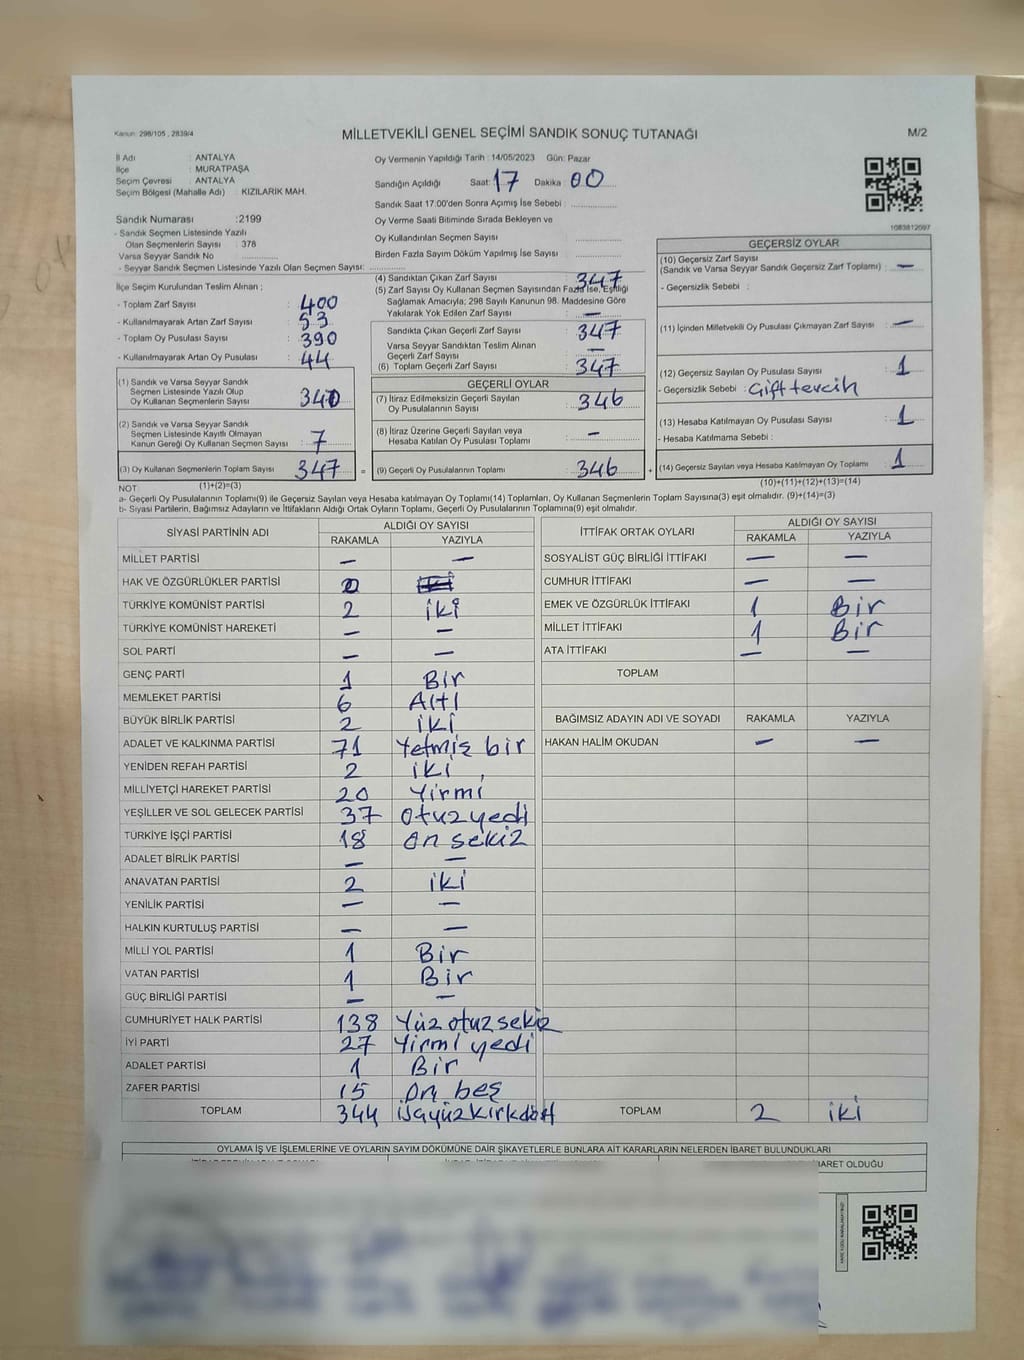 Kanun: 298/105 , 2839/4
MİLLETVEKİLİ GENEL SEÇİMİ SANDIK SONUÇ TUTANAĞI
M/2
İl Adı : ANTALYA
İlçe : MURATPAŞA
Seçim Çevresi : ANTALYA
Seçim Bölgesi (Mahalle Adı) : KIZILARIK MAH.
Sandık Numarası :2199
- Sandık Seçmen Listesinde Yazılı
Olan Seçmenlerin Sayısı : 378
Varsa Seyyar Sandık No
- Seyyar Sandık Seçmen Listesinde Yazılı Olan Seçmen Sayısı:
İlçe Seçim Kurulundan Teslim Alınan ;
- Toplam Zarf Sayısı : 400
- Kullanılmayarak Artan Zarf Sayısı : 53
- Toplam Oy Pusulası Sayısı : 390
- Kullanılmayarak Artan Oy Pusulası : 44
(1) Sandık ve Varsa Seyyar Sandık
Seçmen Listesinde Yazılı Olup
Oy Kullanan Seçmenlerin Sayısı : 340
(2) Sandık ve Varsa Seyyar Sandık
Seçmen Listesinde Kayıtlı Olmayan
Kanun Gereği Oy Kullanan Seçmen Sayısı : 7
(3) Oy Kullanan Seçmenlerin Toplam Sayısı : 347 =
Oy Vermenin Yapıldığı Tarih : 14/05/2023 Gün: Pazar
Sandığın Açıldığı Saat: 17 Dakika 00
Sandık Saat 17.00'den Sonra Açılmış İse Sebebi :
Oy Verme Saati Bitiminde Sırada Bekleyen ve
Oy Kullandırılan Seçmen Sayısı
Birden Fazla Sayım Döküm Yapılmış İse Sayısı :
(4) Sandıktan Çıkan Zarf Sayısı : 347
(5) Zarf Sayısı Oy Kullanan Seçmen Sayısından Fazla İse, Eşitliği
Sağlamak Amacıyla; 298 Sayılı Kanunun 98. Maddesine Göre
Yakılarak Yok Edilen Zarf Sayısı : —
Sandıkta Çıkan Geçerli Zarf Sayısı : 347
Varsa Seyyar Sandıktan Teslim Alınan
Geçerli Zarf Sayısı : —
(6) Toplam Geçerli Zarf Sayısı : 347
GEÇERLİ OYLAR
(7) İtiraz Edilmeksizin Geçerli Sayılan
Oy Pusulalarının Sayısı : 346
(8) İtiraz Üzerine Geçerli Sayılan veya
Hesaba Katılan Oy Pusulası Toplamı : —
(9) Geçerli Oy Pusulalarının Toplamı : 346 +
1083812097
GEÇERSİZ OYLAR
(10) Geçersiz Zarf Sayısı
(Sandık ve Varsa Seyyar Sandık Geçersiz Zarf Toplamı) : —
- Geçersizlik Sebebi :
(11) İçinden Milletvekili Oy Pusulası Çıkmayan Zarf Sayısı : —
(12) Geçersiz Sayılan Oy Pusulası Sayısı : 1
- Geçersizlik Sebebi : Çift tercih
(13) Hesaba Katılmayan Oy Pusulası Sayısı : 1
- Hesaba Katılmama Sebebi :
(14) Geçersiz Sayılan veya Hesaba Katılmayan Oy Toplamı : 1
NOT (1)+(2)=(3)
(10)+(11)+(12)+(13)=(14)
a- Geçerli Oy Pusulalarının Toplamı(9) ile Geçersiz Sayılan veya Hesaba katılmayan Oy Toplamı(14) Toplamları, Oy Kullanan Seçmenlerin Toplam Sayısına(3) eşit olmalıdır. (9)+(14)=(3)
b- Siyasi Partilerin, Bağımsız Adayların ve İttifakların Aldığı Ortak Oyların Toplamı, Geçerli Oy Pusulalarının Toplamına(9) eşit olmalıdır.
SİYASİ PARTİNİN ADI ALDIĞI OY SAYISI
RAKAMLA YAZIYLA
MİLLET PARTİSİ — —
HAK VE ÖZGÜRLÜKLER PARTİSİ
TÜRKİYE KOMÜNİST PARTİSİ 2 iki
TÜRKİYE KOMÜNİST HAREKETİ — —
SOL PARTİ — —
GENÇ PARTİ 1 Bir
MEMLEKET PARTİSİ 6 Altı
BÜYÜK BİRLİK PARTİSİ 2 iki
ADALET VE KALKINMA PARTİSİ 71 Yetmiş bir
YENİDEN REFAH PARTİSİ 2 iki
MİLLİYETÇİ HAREKET PARTİSİ 20 Yirmi
YEŞİLLER VE SOL GELECEK PARTİSİ 37 otuz yedi
TÜRKİYE İŞÇİ PARTİSİ 18 on sekiz
ADALET BİRLİK PARTİSİ — —
ANAVATAN PARTİSİ 2 iki
YENİLİK PARTİSİ — —
HALKIN KURTULUŞ PARTİSİ — —
MİLLİ YOL PARTİSİ 1 Bir
VATAN PARTİSİ 1 Bir
GÜÇ BİRLİĞİ PARTİSİ — —
CUMHURİYET HALK PARTİSİ 138 Yüz otuz sekiz
İYİ PARTİ 27 Yirmi yedi
ADALET PARTİSİ 1 Bir
ZAFER PARTİSİ 15 on beş
TOPLAM 344 üçyüzkırkdört
İTTİFAK ORTAK OYLARI ALDIĞI OY SAYISI
RAKAMLA YAZIYLA
SOSYALİST GÜÇ BİRLİĞİ İTTİFAKI — —
CUMHUR İTTİFAKI — —
EMEK VE ÖZGÜRLÜK İTTİFAKI 1 Bir
MİLLET İTTİFAKI 1 Bir
ATA İTTİFAKI — —
TOPLAM
BAĞIMSIZ ADAYIN ADI VE SOYADI RAKAMLA YAZIYLA
HAKAN HALİM OKUDAN — —
TOPLAM 2 iki
OYLAMA İŞ VE İŞLEMLERİNE VE OYLARIN SAYIM DÖKÜMÜNE DAİR ŞİKAYETLERLE BUNLARA AİT KARARLARIN NELERDEN İBARET BULUNDUKLARI
İBARET OLDUĞU